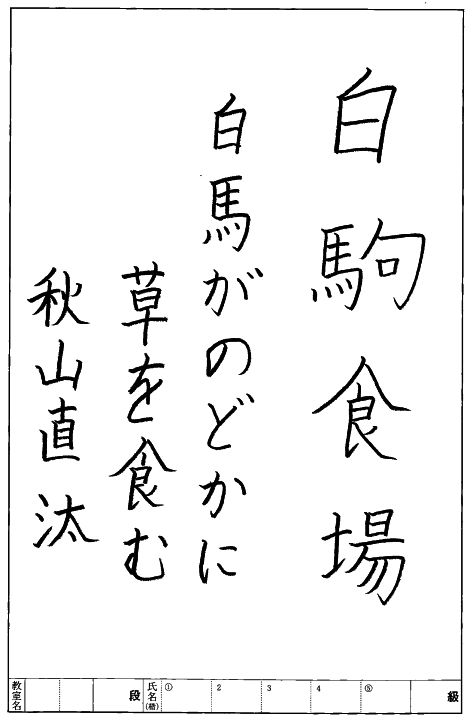 白駒食場
白馬がのどかに
草を食む
秋山直汰
教室名 段 氏名(楷) ① 2 3 4 ⑤ 級